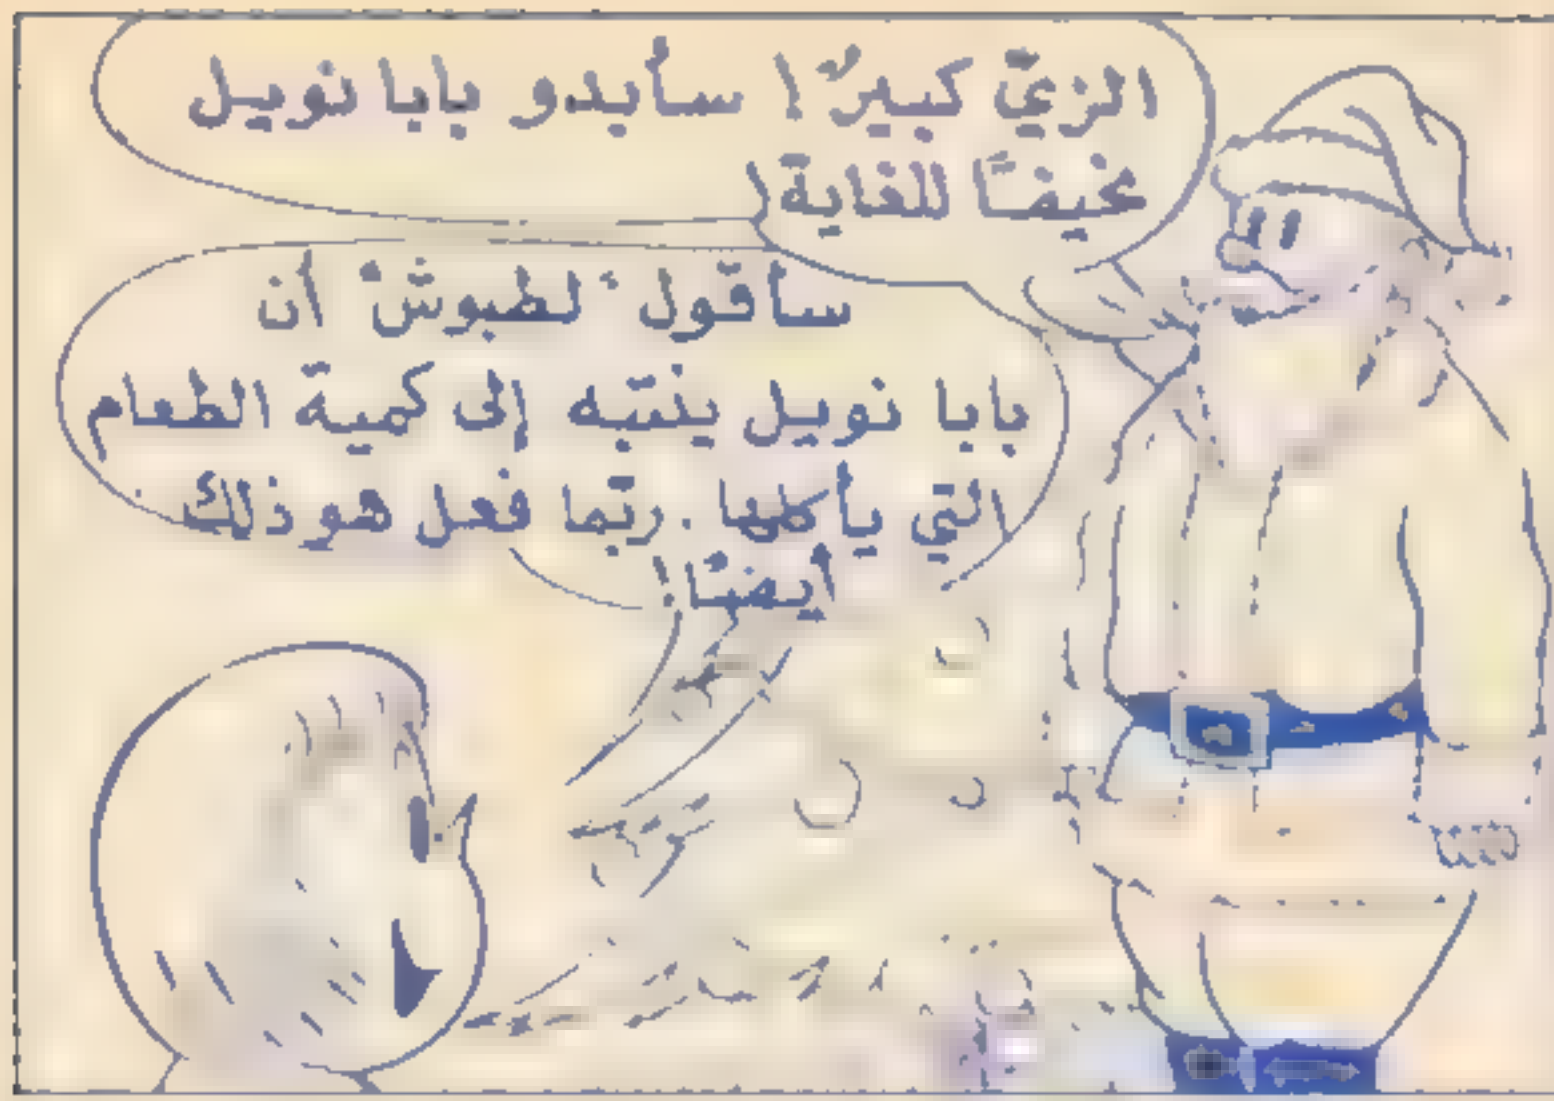 الزيّ كبيرٌ! سأبدو بابا نويل
نحيفًا للغاية!
سأقول لطبوش أن
بابا نويل ينتبه إلى كمية الطعام
التي يأكلها. ربّما فعل هو ذلك
أيضًا!